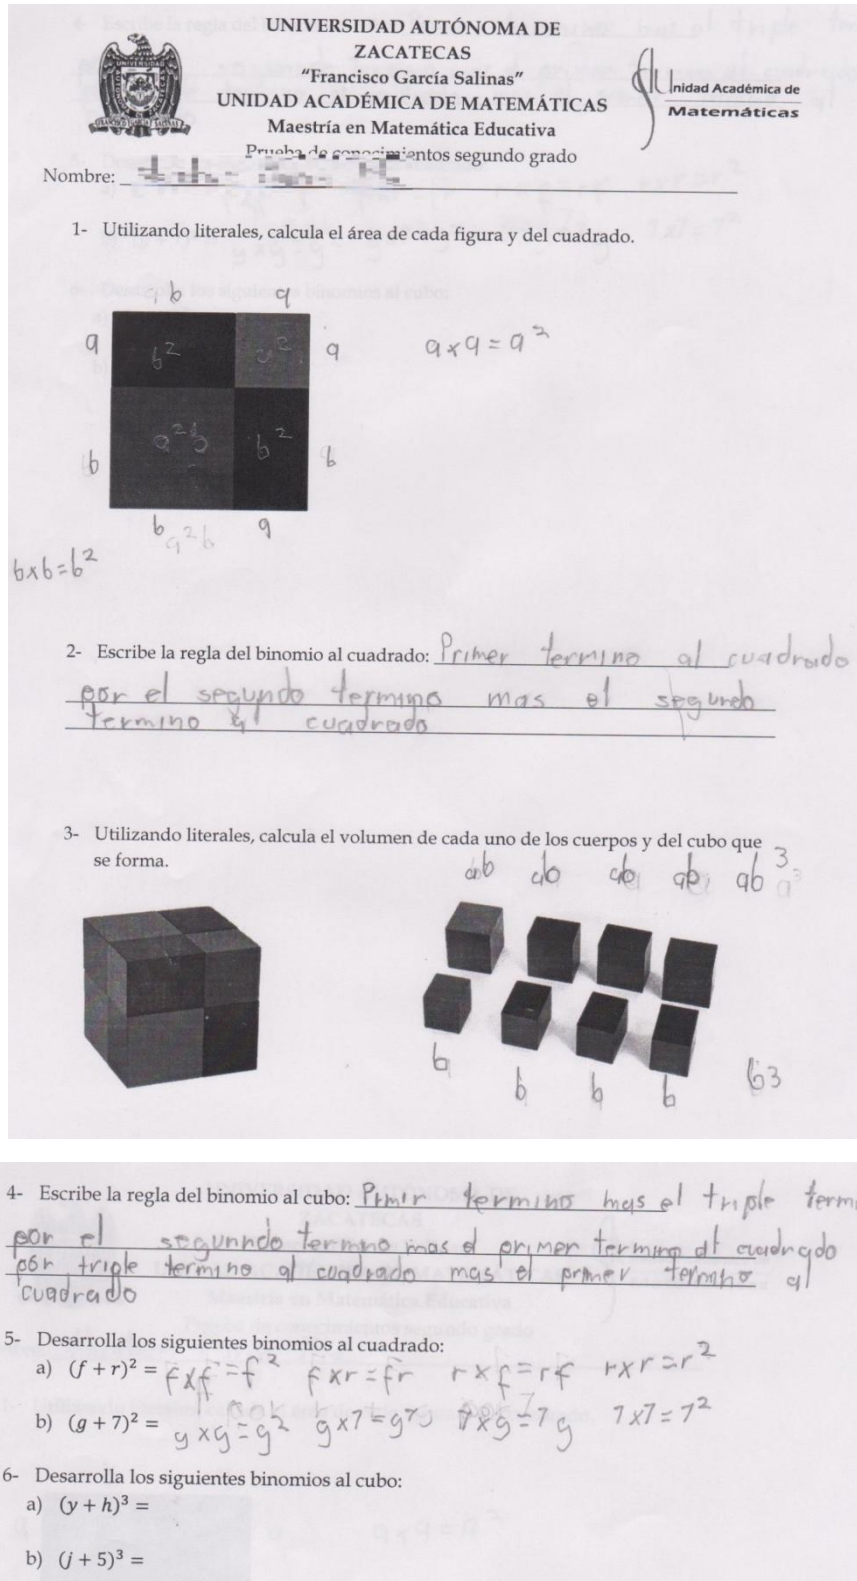 UNIVERSIDAD AUTÓNOMA DE
ZACATECAS
“Francisco García Salinas”
UNIDAD ACADÉMICA DE MATEMÁTICAS
Maestría en Matemática Educativa
Prueba de conocimientos segundo grado
Unidad Académica de
Matemáticas
Nombre:
1- Utilizando literales, calcula el área de cada figura y del cuadrado.
b a
a b² a² a a x a = a²
b a²b b² b
b a²b a
b x b = b²
2- Escribe la regla del binomio al cuadrado: Primer termino al cuadrado
por el segundo termino mas el segundo
termino al cuadrado
3- Utilizando literales, calcula el volumen de cada uno de los cuerpos y del cubo que
se forma.
ab ab ab ab ab³
b b b b b3
4- Escribe la regla del binomio al cubo: Primir termino mas el triple term
por el segunndo termino mas el primer termino al cuadrado
por triple termino al cuadrado mas el primer termino al
cuadrado
5- Desarrolla los siguientes binomios al cuadrado:
a) (f + r)² = f x f = f² f x r = fr r x f = rf r x r = r²
b) (g + 7)² = g x g = g² g x 7 = g7 7 x g = 7g 7 x 7 = 7²
6- Desarrolla los siguientes binomios al cubo:
a) (y + h)³ =
b) (j + 5)³ =